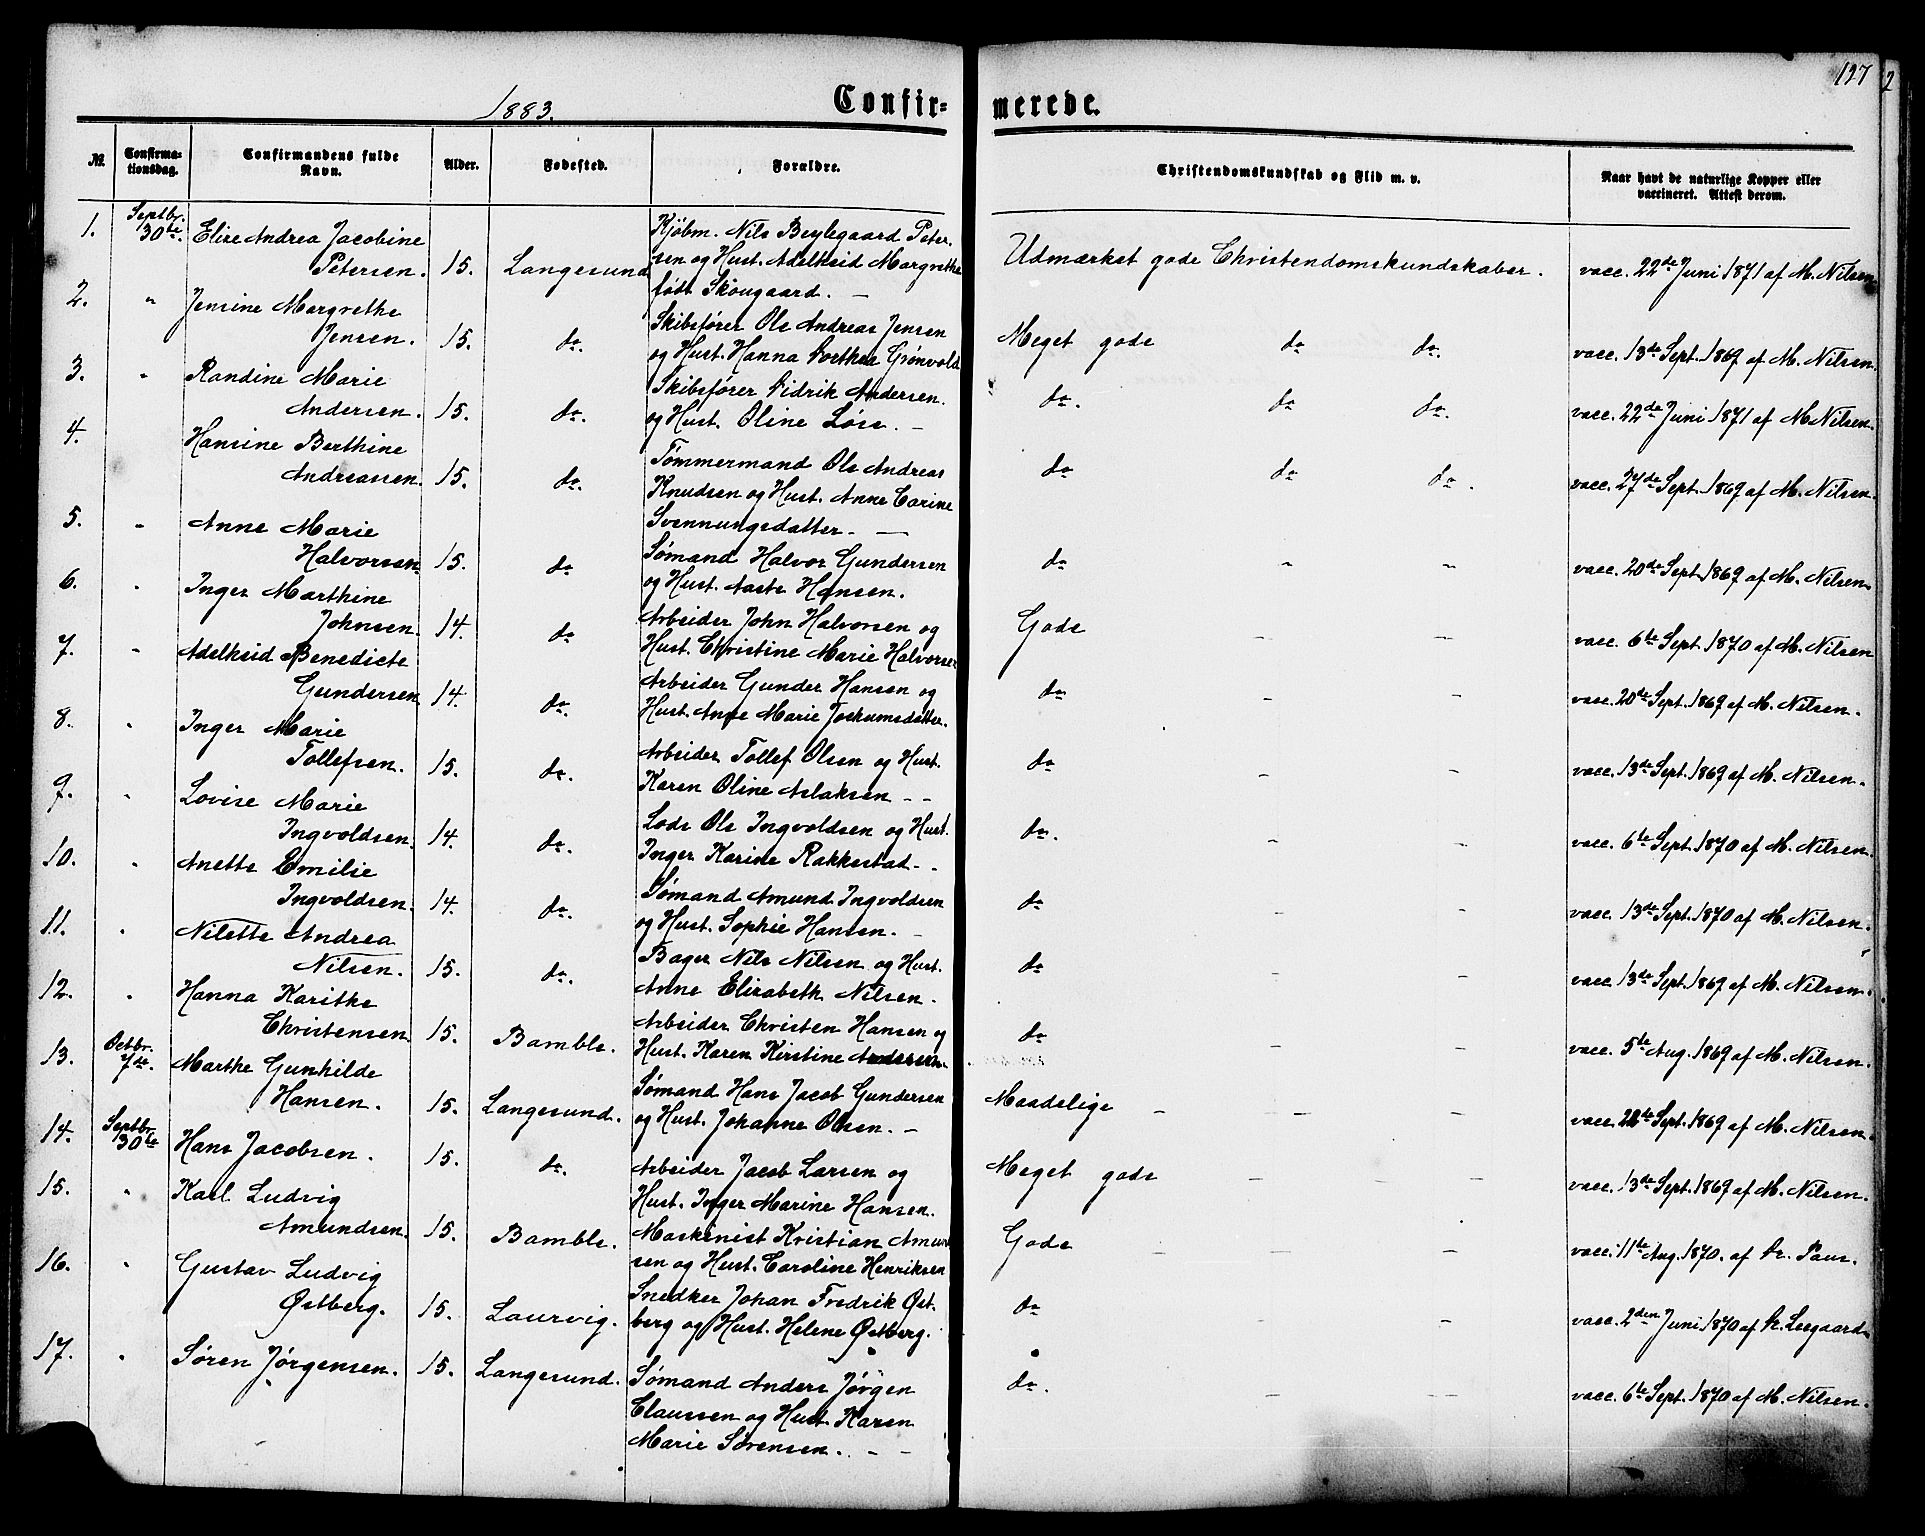 127
2
1883.
Confir-
merede.
№.
Confirma-
tionsdag.
Confirmandens fulde
Navn.
Alder.
Fødested.
Forældre.
Christendomskundskab og Flid m. v.
Naar havt de naturlige Kopper eller
vaccineret. Attest derom.
1. Septbr. 30te. Elise Andrea Jacobine
Petersen. 15. Langesund
Kjøbm. Nils Beylegaard Peter-
sen og Hust. Adelheid Margrethe
født Skougaard. —
Udmærket gode Christendomskundskaber. vacc. 22de Juni 1871 af M. Nilsen.
2. " Jensine Margrethe
Jensen. 15. do.
Skibsfører Ole Andreas Jensen
og Hust. Hanna Dorthea Grønvold.
Meget gode do do. vacc. 13de Sept. 1869 af M. Nilsen.
3. " Randine Marie
Andersen. 15. do.
Skibsfører Didrik Andersen.
og Hust. Oline Løse. —
do. do do. vacc. 22de Juni 1871 af M. Nilsen.
4. Hansine Berthine
Andreassen. 15. do.
Tømmermand Ole Andreas
Knudsen og Hust. Anne Carine
Svennungsdatter. —
do do do. vacc. 27de Sept. 1869 af M. Nilsen.
5. " Anne Marie
Halvorsen. 15. do
Sømand Halvor Gundersen
og Hust. Aaste Hansen.
do – – vacc. 20de Sept. 1869 af M. Nilsen.
6. " Inger Marthine
Johnsen. 14. do
Arbeider John Halvorsen og
Hust. Christine Marie Halvorsen
Gode – – vacc. 6te Sept. 1870 af M. Nilsen
7. " Adelheid Benedicte
Gundersen 14. do.
Arbeider Gunder Hansen og
Hust. Anne Marie Jochumsdatter.
do – – vacc. 20de Sept. 1869 af M. Nilsen.
8. " Inger Marie
Tollefsen. 15. do.
Arbeider Tollef Olsen og Hust.
Karen Oline Aslaksen – –
do – – vacc. 13de Sept. 1869 af M. Nilsen.
9. " Lovise Marie
Ingvoldsen. 14. do.
Lods Ole Ingvoldsen og Hust.
Inger Karine Rakkestad – –
do. – – vacc. 6te Sept. 1870 af M. Nilsen.
10. " Anette Emilie
Ingvoldsen. 14. do.
Sømand Amund Ingvoldsen
og Hust. Sophie Hansen. –
do – – vacc. 13de Sept. 1870 af M. Nilsen.
11. " Nilette Andrea
Nilsen. 15. do.
Bager Nils Nilsen og Hust.
Anne Elisabeth Nilsen.
do – – vacc. 13de Sept. 1869 af M. Nilsen.
12. " Hanna Karithe
Christensen 15. Bamble.
Arbeider Christen Hansen og
Hust. Karen Kirstine Andersen.
do – – vacc. 5te Aug. 1869 af M. Nilsen.
13. Octbr. 7de. Marthe Gunhilde
Hansen. 15. Langesund.
Sømand Hans Jacob Gundersen
og Hust. Johanne Olsen. –
Maadelige – – – vacc. Sept. 1869 af M. Nilsen.
14. Septbr. 30te Hans Jacobsen. 15. do.
Arbeider Jacob Larsen og
Hust. Inger Marine Hansen.
Meget gode – – – vacc. 13de Sept. 1869 af M. Nilsen.
15. " Karl Ludvig
Amundsen. 15. Bamble.
Maskinist Kristian Amund-
sen og Hust. Caroline Henriksen
Gode – – – vacc. 11te Aug. 1870. af Dr. Paus.
16. " Gustav Ludvig
Østberg. 15. Laurvig.
Snedker Johan Fredrik Øst-
berg og Hust. Helene Østberg.
do – vacc. 2den Juni 1870 af Dr. Leegaard.
17. " Søren Jørgensen. 15. Langesund.
Sømand Anders Jørgen
Claussen og Hust. Karen
Marie Sørensen. – –
do. – – vacc. 6te Sept. 1870 af M. Nilsen.